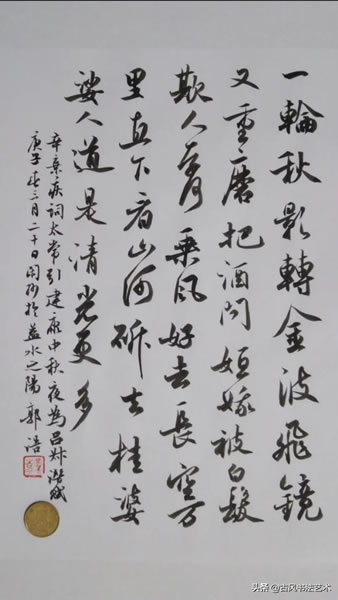 一輪秋影轉金波飛鏡
又重磨把酒問姮娥被白髮
欺人奈何乘風好去長空万
里直下看山河斫去桂婆
娑人道是清光更多
辛棄疾詞太常引建康中秋夜為呂叔潛賦
庚子三月二十日閑抄於益水之陽 郭浩
头条 @古风书法艺术